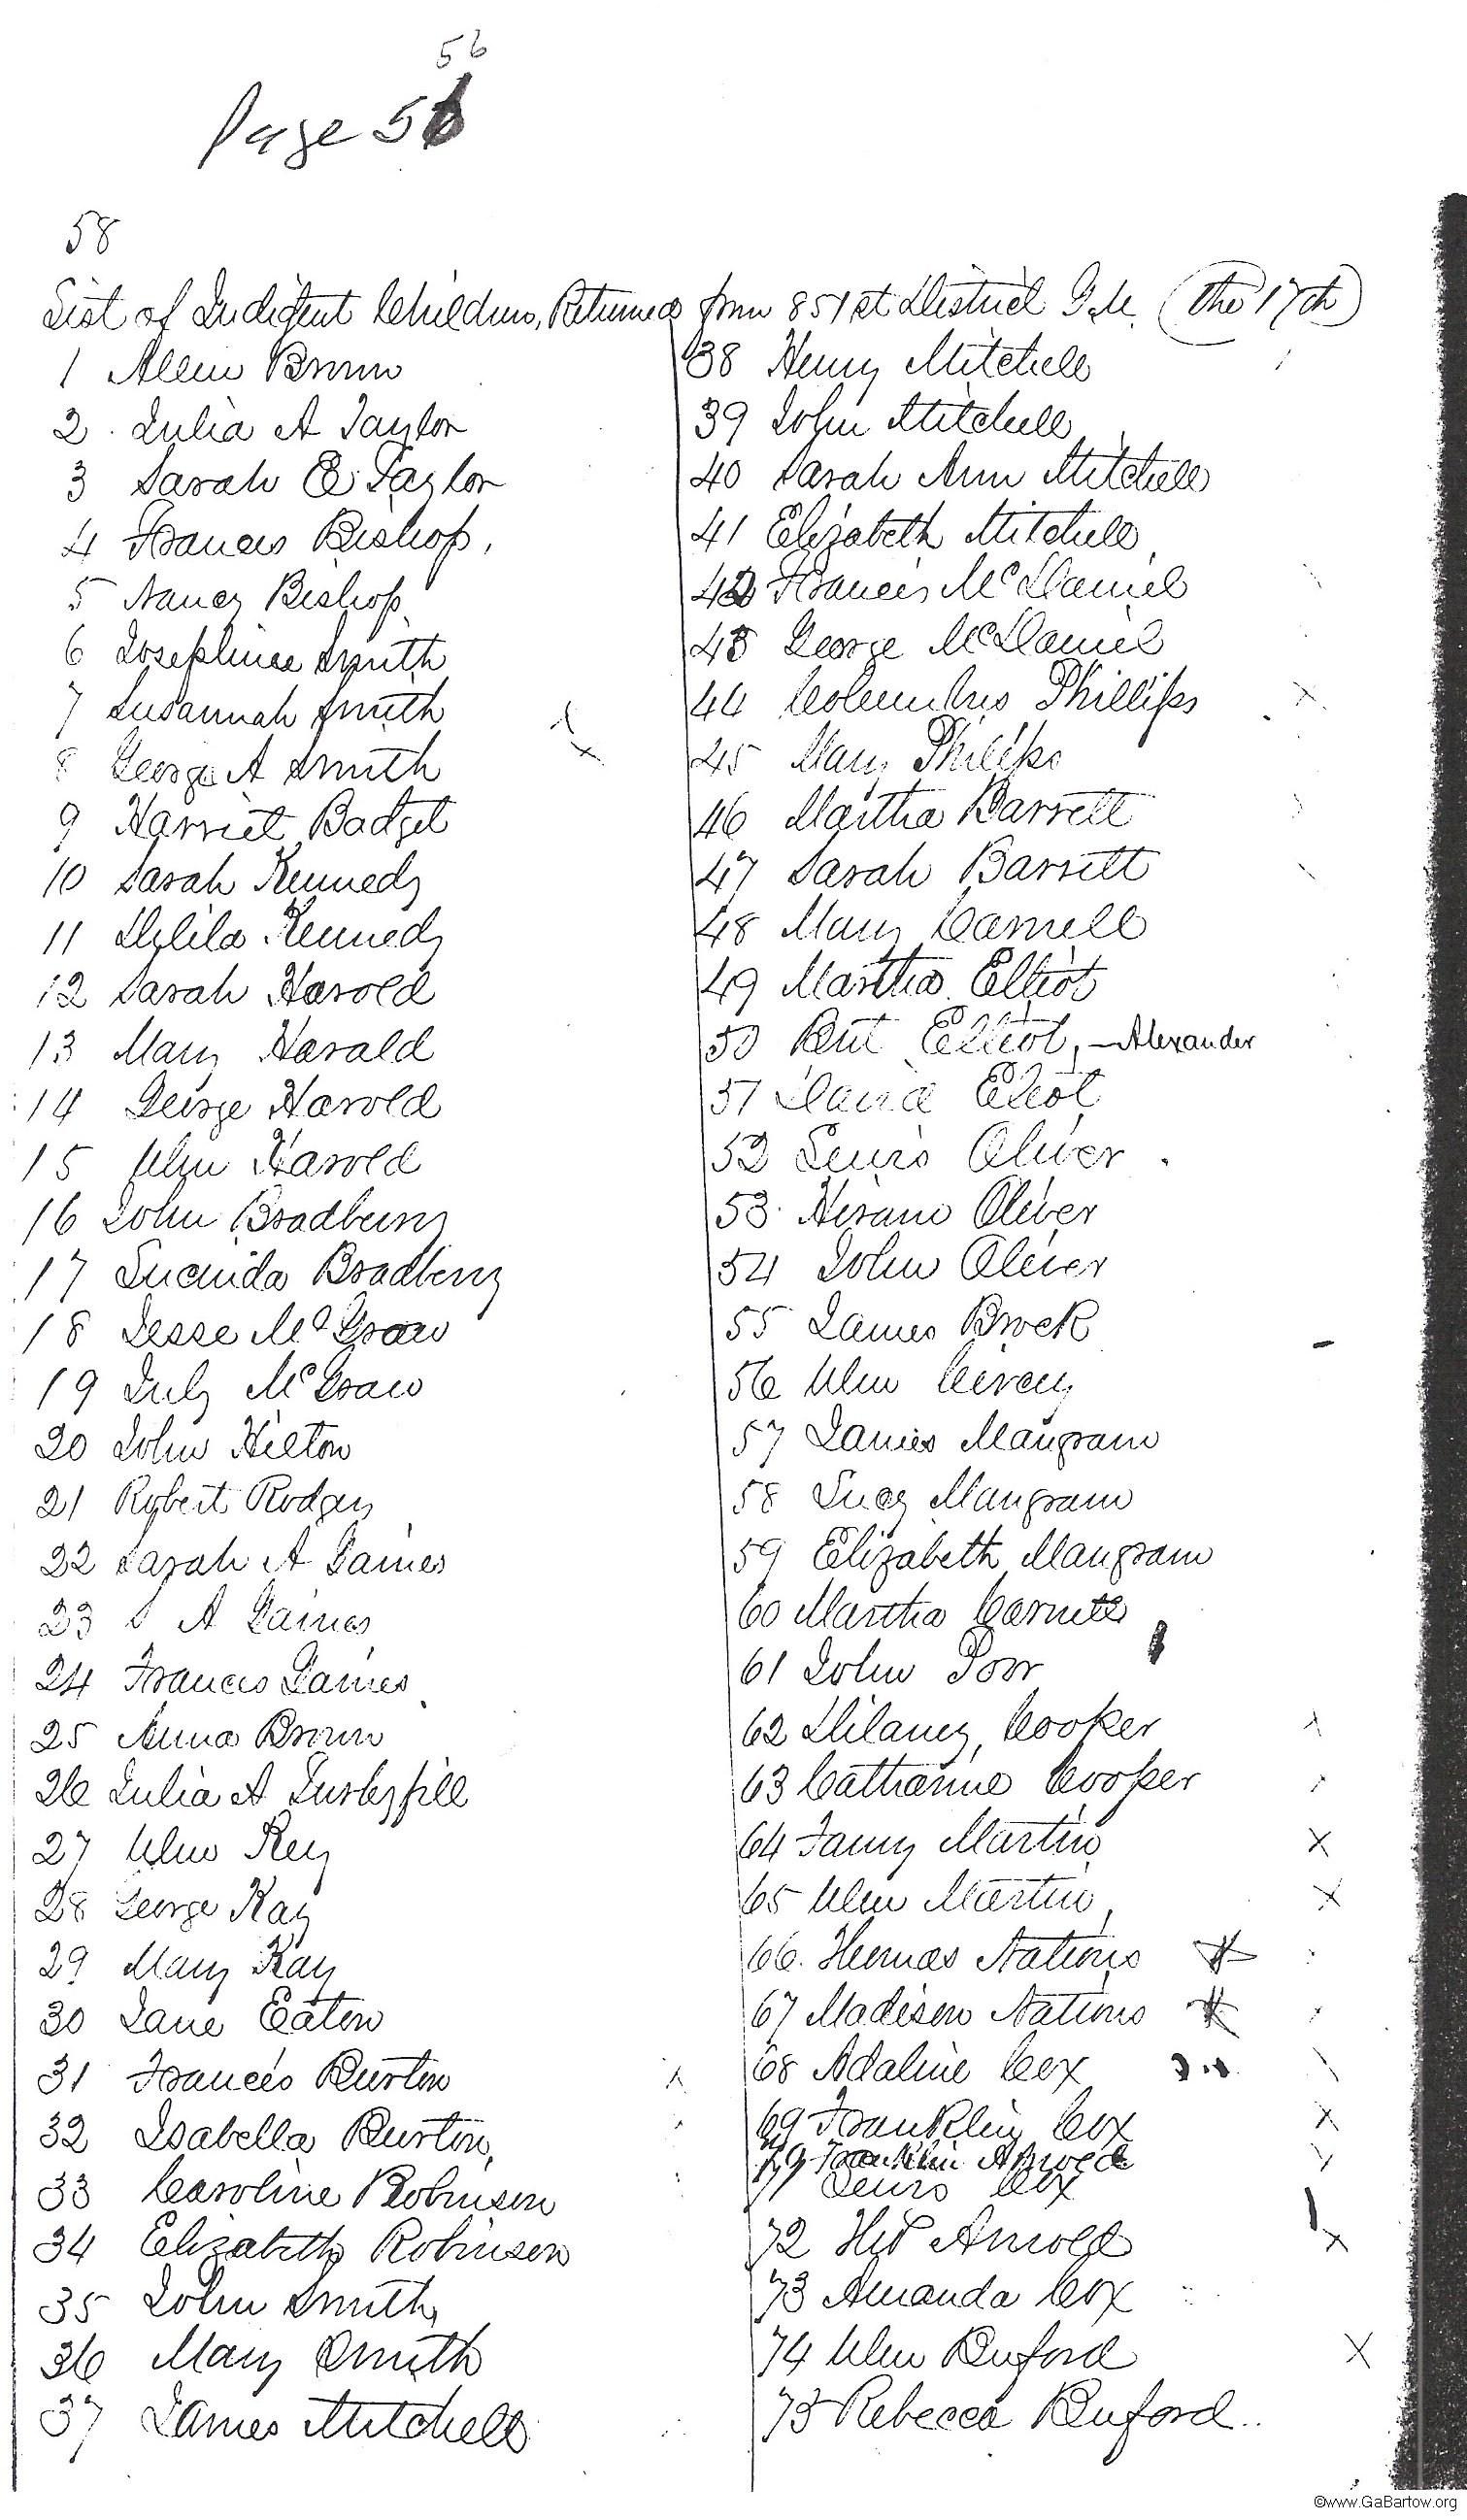 56
Page 56
58
List of Indigent Children, Returned from 851st District G.M. (the 17th)
1 Allen Brown
2 Julia A Taylor
3 Sarah E Taylor
4 Frances Bishop,
5 Nancy Bishop
6 Josephine Smith
7 Susannah Smith
8 George A Smith
9 Harriet Badget
10 Sarah Kennedy
11 Delila Kennedy
12 Sarah Harold
13 Mary Harald
14 George Harold
15 Wm Harold
16 John Bradberry
17 Lucinda Bradberry
18 Jesse McGraw
19 July McGraw
20 John Hilton
21 Robert Rodgers
22 Sarah A Gaines
23 S A Gaines
24 Frances Gaines
25 Anna Brown
26 Julia A Turleyfill
27 Wm Key
28 George Kay
29 Mary Kay
30 Jane Eaton
31 Frances Burton
32 Isabella Burton,
33 Caroline Robinson
34 Elizabeth Robinson
35 John Smith
36 Mary Smith
37 James Mitchell
38 Henry Mitchell
39 John Mitchell
40 Sarah Ann Mitchell
41 Elizabeth Mitchell
42 Francis McDaniel
43 George McDaniel
44 Columbus Phillips
45 Mary Philips
46 Martha Barrett
47 Sarah Barrett
48 Mary
49 Martha Elliot
50 Elliot, - Alexander
51 David Eliot
52 Lewis Oliver
53 Hiram Oliver
54 John Oliver
55 James Brock
56 Wm
57 James Mangram
58 Lucy Mangram
59 Elizabeth Mangram
60 Martha
61 John Poor
62 Dilancy Cooker
63 Catharine Cooper
64 Fanny Martin
65 Wm Martin
66. Nations
67 Madison Nations
68 Adaline Cox
69 Franklin Cox
Franklin Arnold
71 Lewis Cox
72 Arnold
73 Amanda Cox
74 Wm Buford
75 Rebecca Buford
©www.GaBartow.org